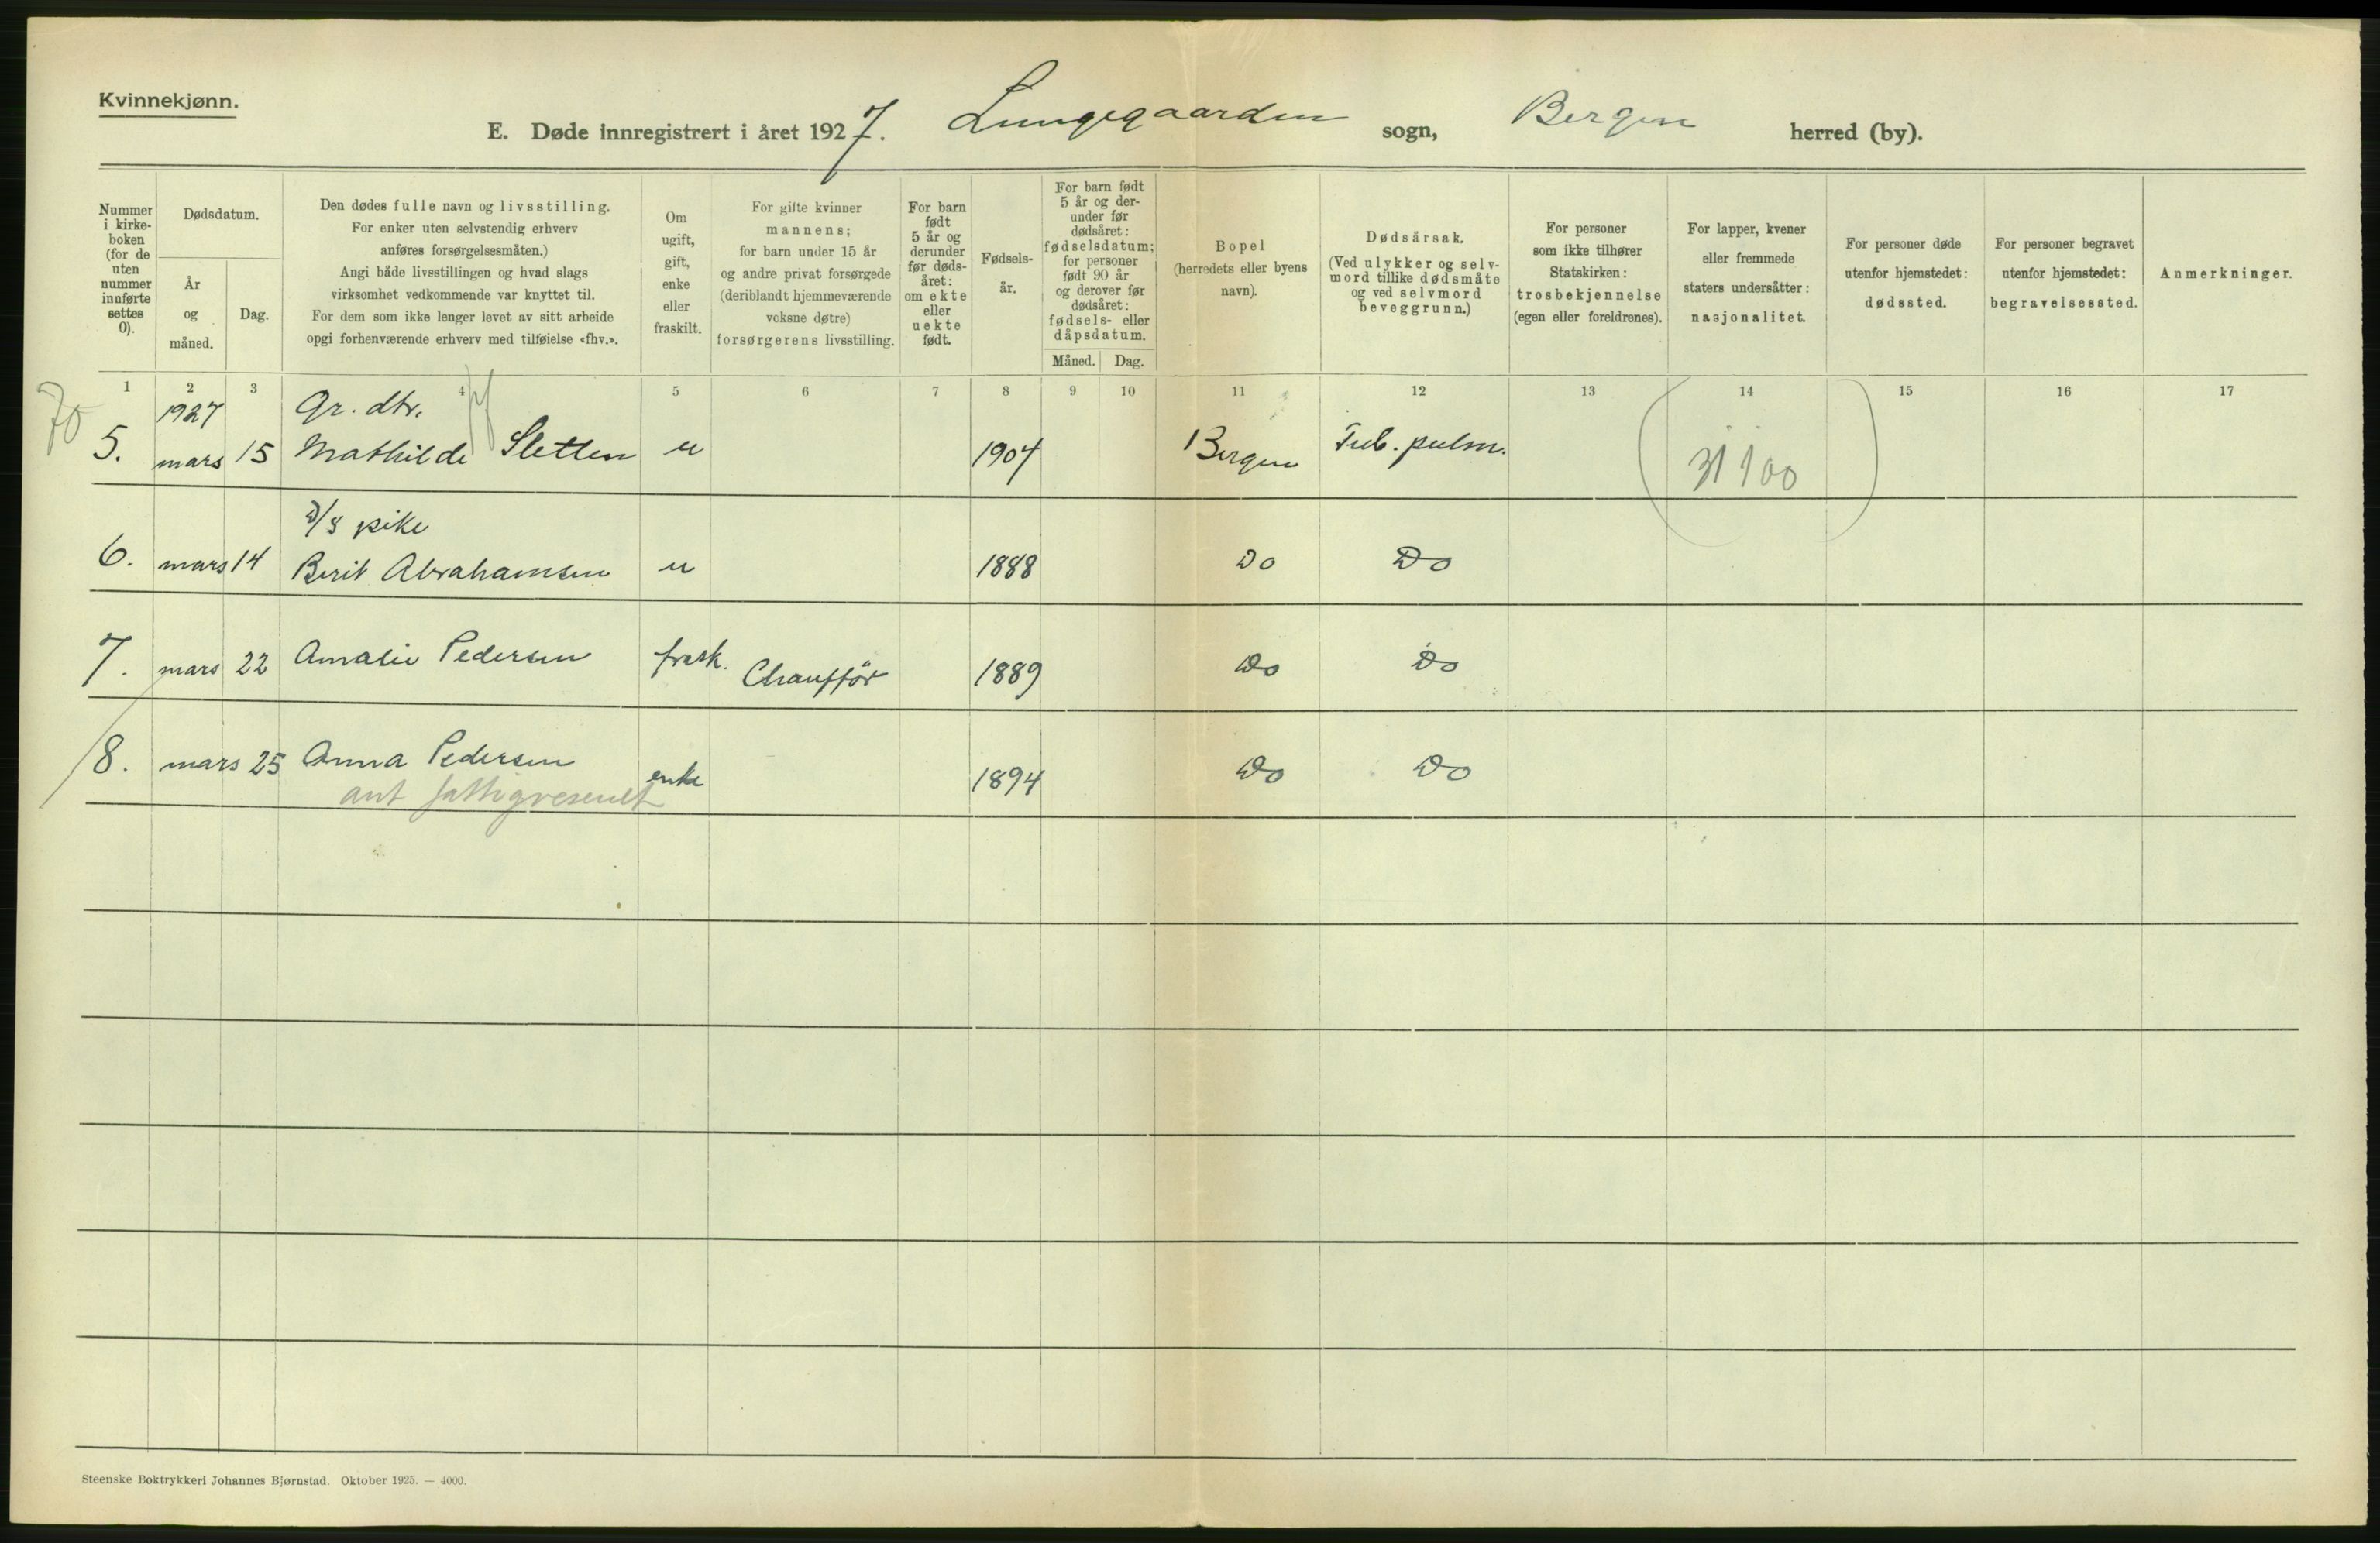 Kvinnekjønn.
E. Døde innregistrert i året 1927. Lungegaarden sogn, Bergen herred (by).
Nummer i kirke-boken (for de uten nummer innførte settes 0).
Dødsdatum.
År og måned.
Dag.
Den dødes fulle navn og livsstilling.
For enker uten selvstendig erhverv
anføres forsørgelsesmåten.)
Angi både livsstillingen og hvad slags
virksomhet vedkommende var knyttet til.
For dem som ikke lenger levet av sitt arbeide
opgi forhenværende erhverv med tilføielse «fhv.».
Om
ugift,
gift,
enke
eller
fraskilt.
For gifte kvinner
mannens;
for barn under 15 år
og andre privat forsørgede
(deriblandt hjemmeværende
voksne døtre)
forsørgerens livsstilling.
For barn
født
5 år og
derunder
før døds-
året:
om ekte
eller
uekte
født.
Fødsels-
år.
For barn født
5 år og der-
under før
dødsåret:
fødselsdatum;
for personer
født 90 år
og derover før
dødsåret:
fødsels- eller
dåpsdatum.
Måned. Dag.
Bopel
(herredets eller byens
navn).
Dødsårsak.
(Ved ulykker og selv-
mord tillike dødsmåte
og ved selvmord
beveggrunn.)
For personer
som ikke tilhører
Statskirken:
trosbekjennelse
(egen eller foreldrenes).
For lapper, kvener
eller fremmede
staters undersåtter:
nasjonalitet.
For personer døde
utenfor hjemstedet:
dødssted.
For personer begravet
utenfor hjemstedet:
begravelsessted.
Anmerkninger.
1 2 3 4 5 6 7 8 9 10 11 12 13 14 15 16 17
70
1927 Gr. dtr.
5. mars 15 Mathilde Sletten u 1904 Bergen Tub. pulm. 31 100
D/s pike
6. mars 14 Berit Abrahamsen u 1888 Do Do
7. mars 22 Amalie Pedersen frask. Chauffør 1889 Do Do
8. mars 25 Anna Pedersen enke 1894 Do Do
ant fattigvesenet
Steenske Boktrykkeri Johannes Bjørnstad. Oktober 1925. — 4000.